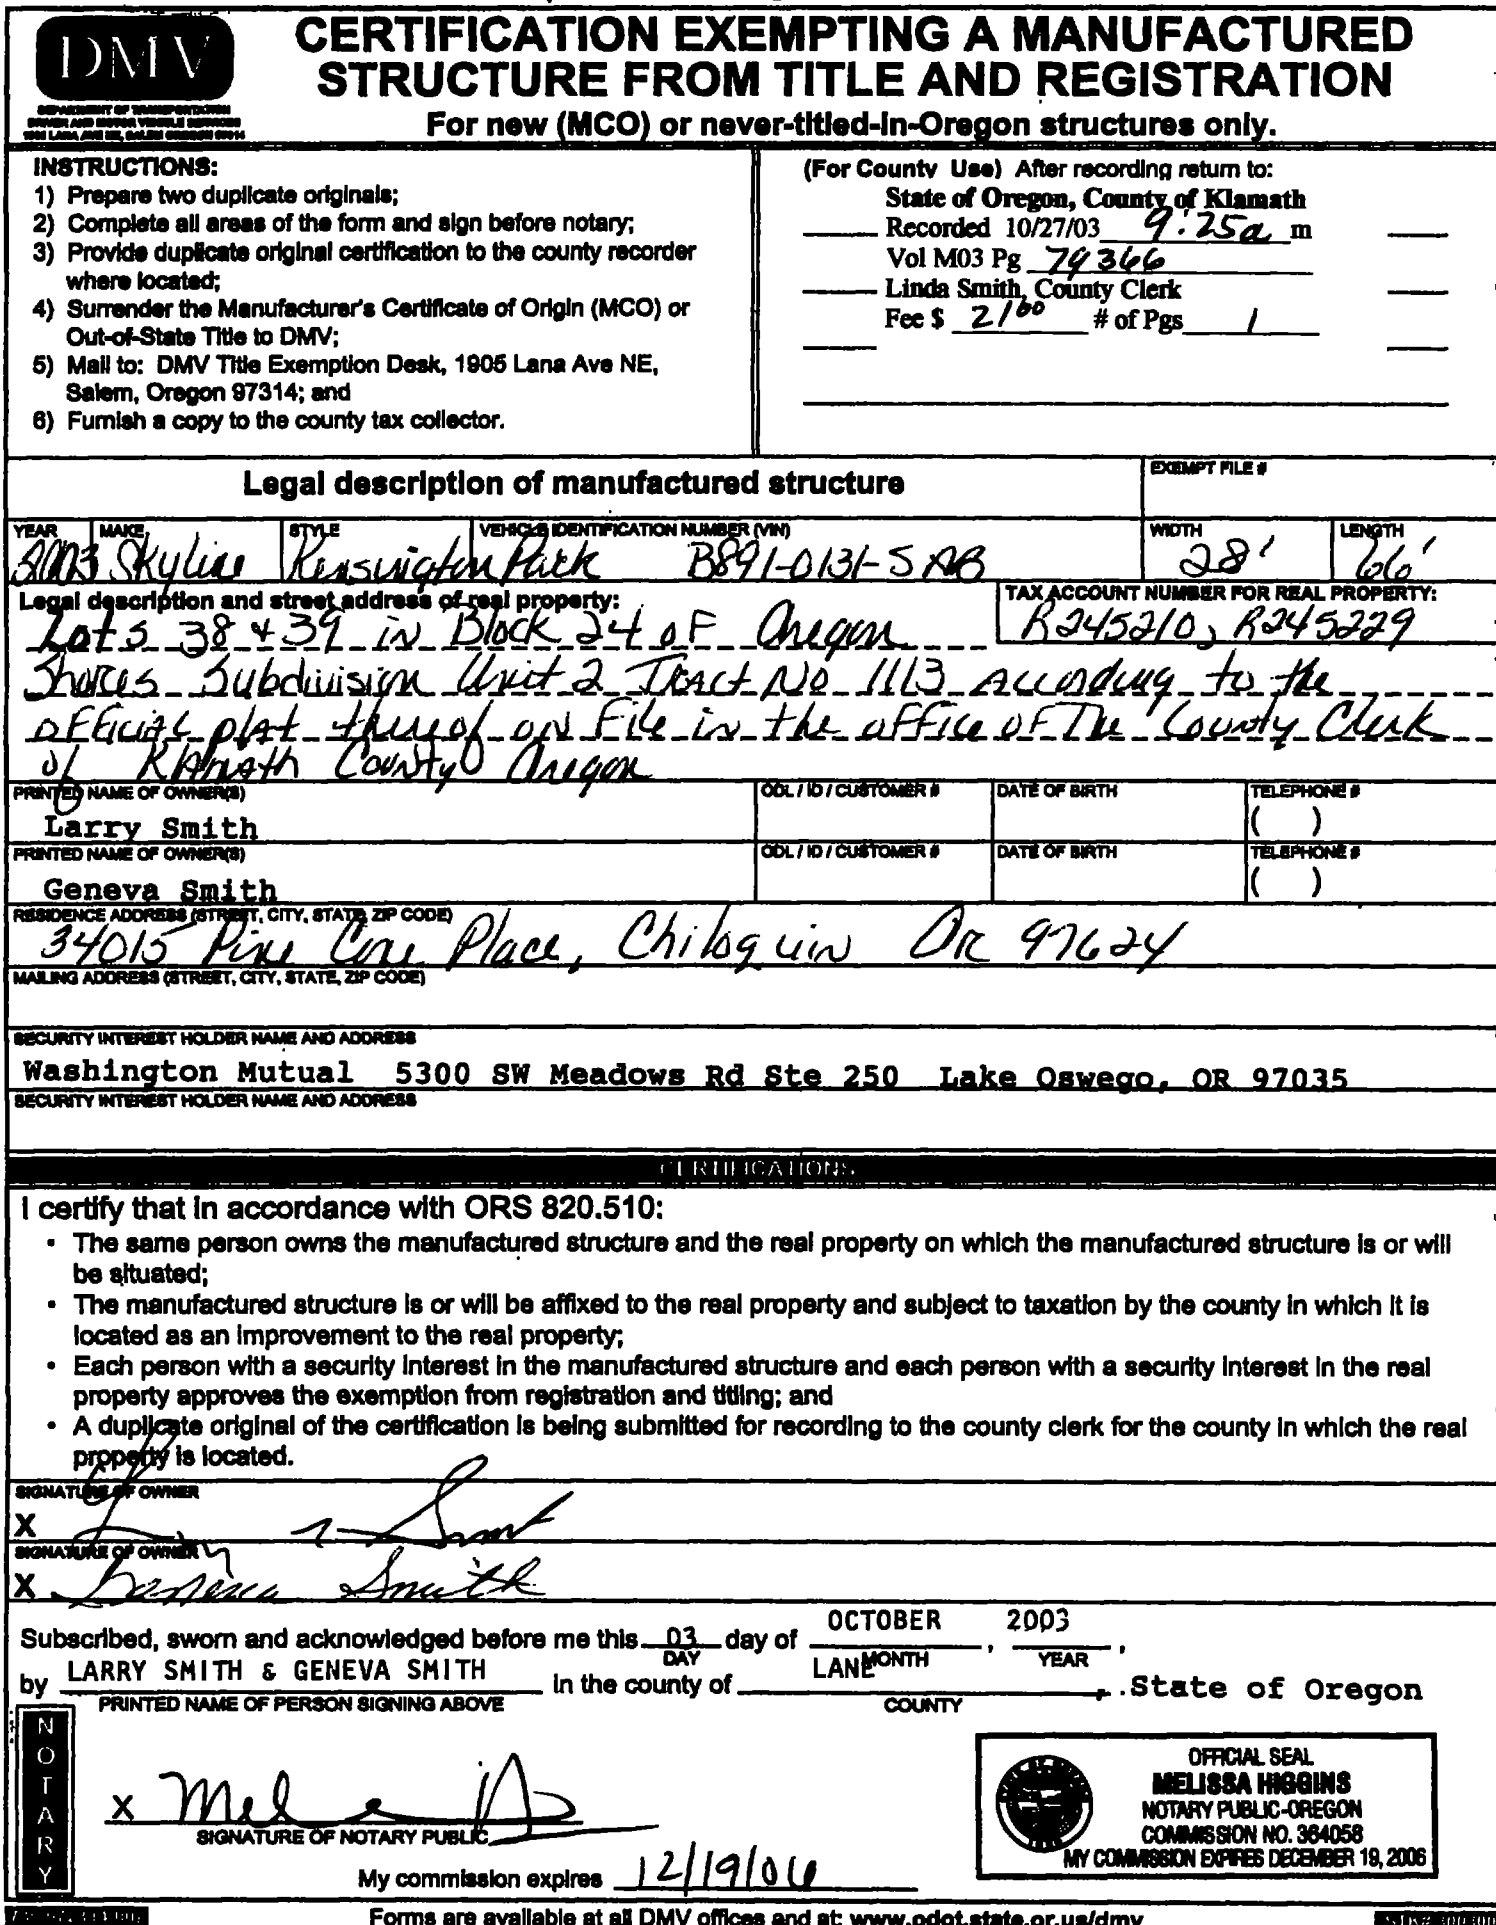 DMV
DEPARTMENT OF TRANSPORTATION
DRIVER AND MOTOR VEHICLE SERVICES
1905 LANA AVE NE, SALEM OREGON 97314
CERTIFICATION EXEMPTING A MANUFACTURED
STRUCTURE FROM TITLE AND REGISTRATION
For new (MCO) or never-titled-in-Oregon structures only.
INSTRUCTIONS:
1) Prepare two duplicate originals;
2) Complete all areas of the form and sign before notary;
3) Provide duplicate original certification to the county recorder
where located;
4) Surrender the Manufacturer's Certificate of Origin (MCO) or
Out-of-State Title to DMV;
5) Mail to: DMV Title Exemption Desk, 1905 Lana Ave NE,
Salem, Oregon 97314; and
6) Furnish a copy to the county tax collector.
(For County Use) After recording return to:
State of Oregon, County of Klamath
Recorded 10/27/03 9:25a m
Vol M03 Pg 79366
Linda Smith, County Clerk
Fee $ 21⁰⁰ # of Pgs 1
Legal description of manufactured structure
EXEMPT FILE #
YEAR MAKE STYLE VEHICLE IDENTIFICATION NUMBER (VIN) WIDTH LENGTH
2003 Skyline Kensington Park B891-0131-S AB 28' 66'
Legal description and street address of real property:
TAX ACCOUNT NUMBER FOR REAL PROPERTY:
R245210, R245229
Lots 38 & 39 in Block 24 of Oregon
Shores Subdivision Unit 2 Tract No 1113 according to the
official plat thereof on File in the office of The County Clerk
of Klamath County Oregon
PRINTED NAME OF OWNER(S) ODL / ID / CUSTOMER # DATE OF BIRTH TELEPHONE #
Larry Smith ( )
PRINTED NAME OF OWNER(S) ODL / ID / CUSTOMER # DATE OF BIRTH TELEPHONE #
Geneva Smith ( )
RESIDENCE ADDRESS (STREET, CITY, STATE, ZIP CODE)
34015 Pine Cone Place, Chiloquin OR 97624
MAILING ADDRESS (STREET, CITY, STATE, ZIP CODE)
SECURITY INTEREST HOLDER NAME AND ADDRESS
Washington Mutual 5300 SW Meadows Rd Ste 250 Lake Oswego, OR 97035
SECURITY INTEREST HOLDER NAME AND ADDRESS
CERTIFICATIONS
I certify that in accordance with ORS 820.510:
• The same person owns the manufactured structure and the real property on which the manufactured structure is or will
be situated;
• The manufactured structure is or will be affixed to the real property and subject to taxation by the county in which it is
located as an improvement to the real property;
• Each person with a security interest in the manufactured structure and each person with a security interest in the real
property approves the exemption from registration and titling; and
• A duplicate original of the certification is being submitted for recording to the county clerk for the county in which the real
property is located.
SIGNATURE OF OWNER
X Smith
SIGNATURE OF OWNER
X Geneva Smith
Subscribed, sworn and acknowledged before me this 03 day of OCTOBER, 2003,
DAY MONTH YEAR
by LARRY SMITH & GENEVA SMITH in the county of LANE, State of Oregon
PRINTED NAME OF PERSON SIGNING ABOVE COUNTY
NOTARY
X
SIGNATURE OF NOTARY PUBLIC
My commission expires 12/19/06
OFFICIAL SEAL
MELISSA HIGGINS
NOTARY PUBLIC-OREGON
COMMISSION NO. 364058
MY COMMISSION EXPIRES DECEMBER 19, 2006
Forms are available at all DMV offices and at: www.odot.state.or.us/dmv